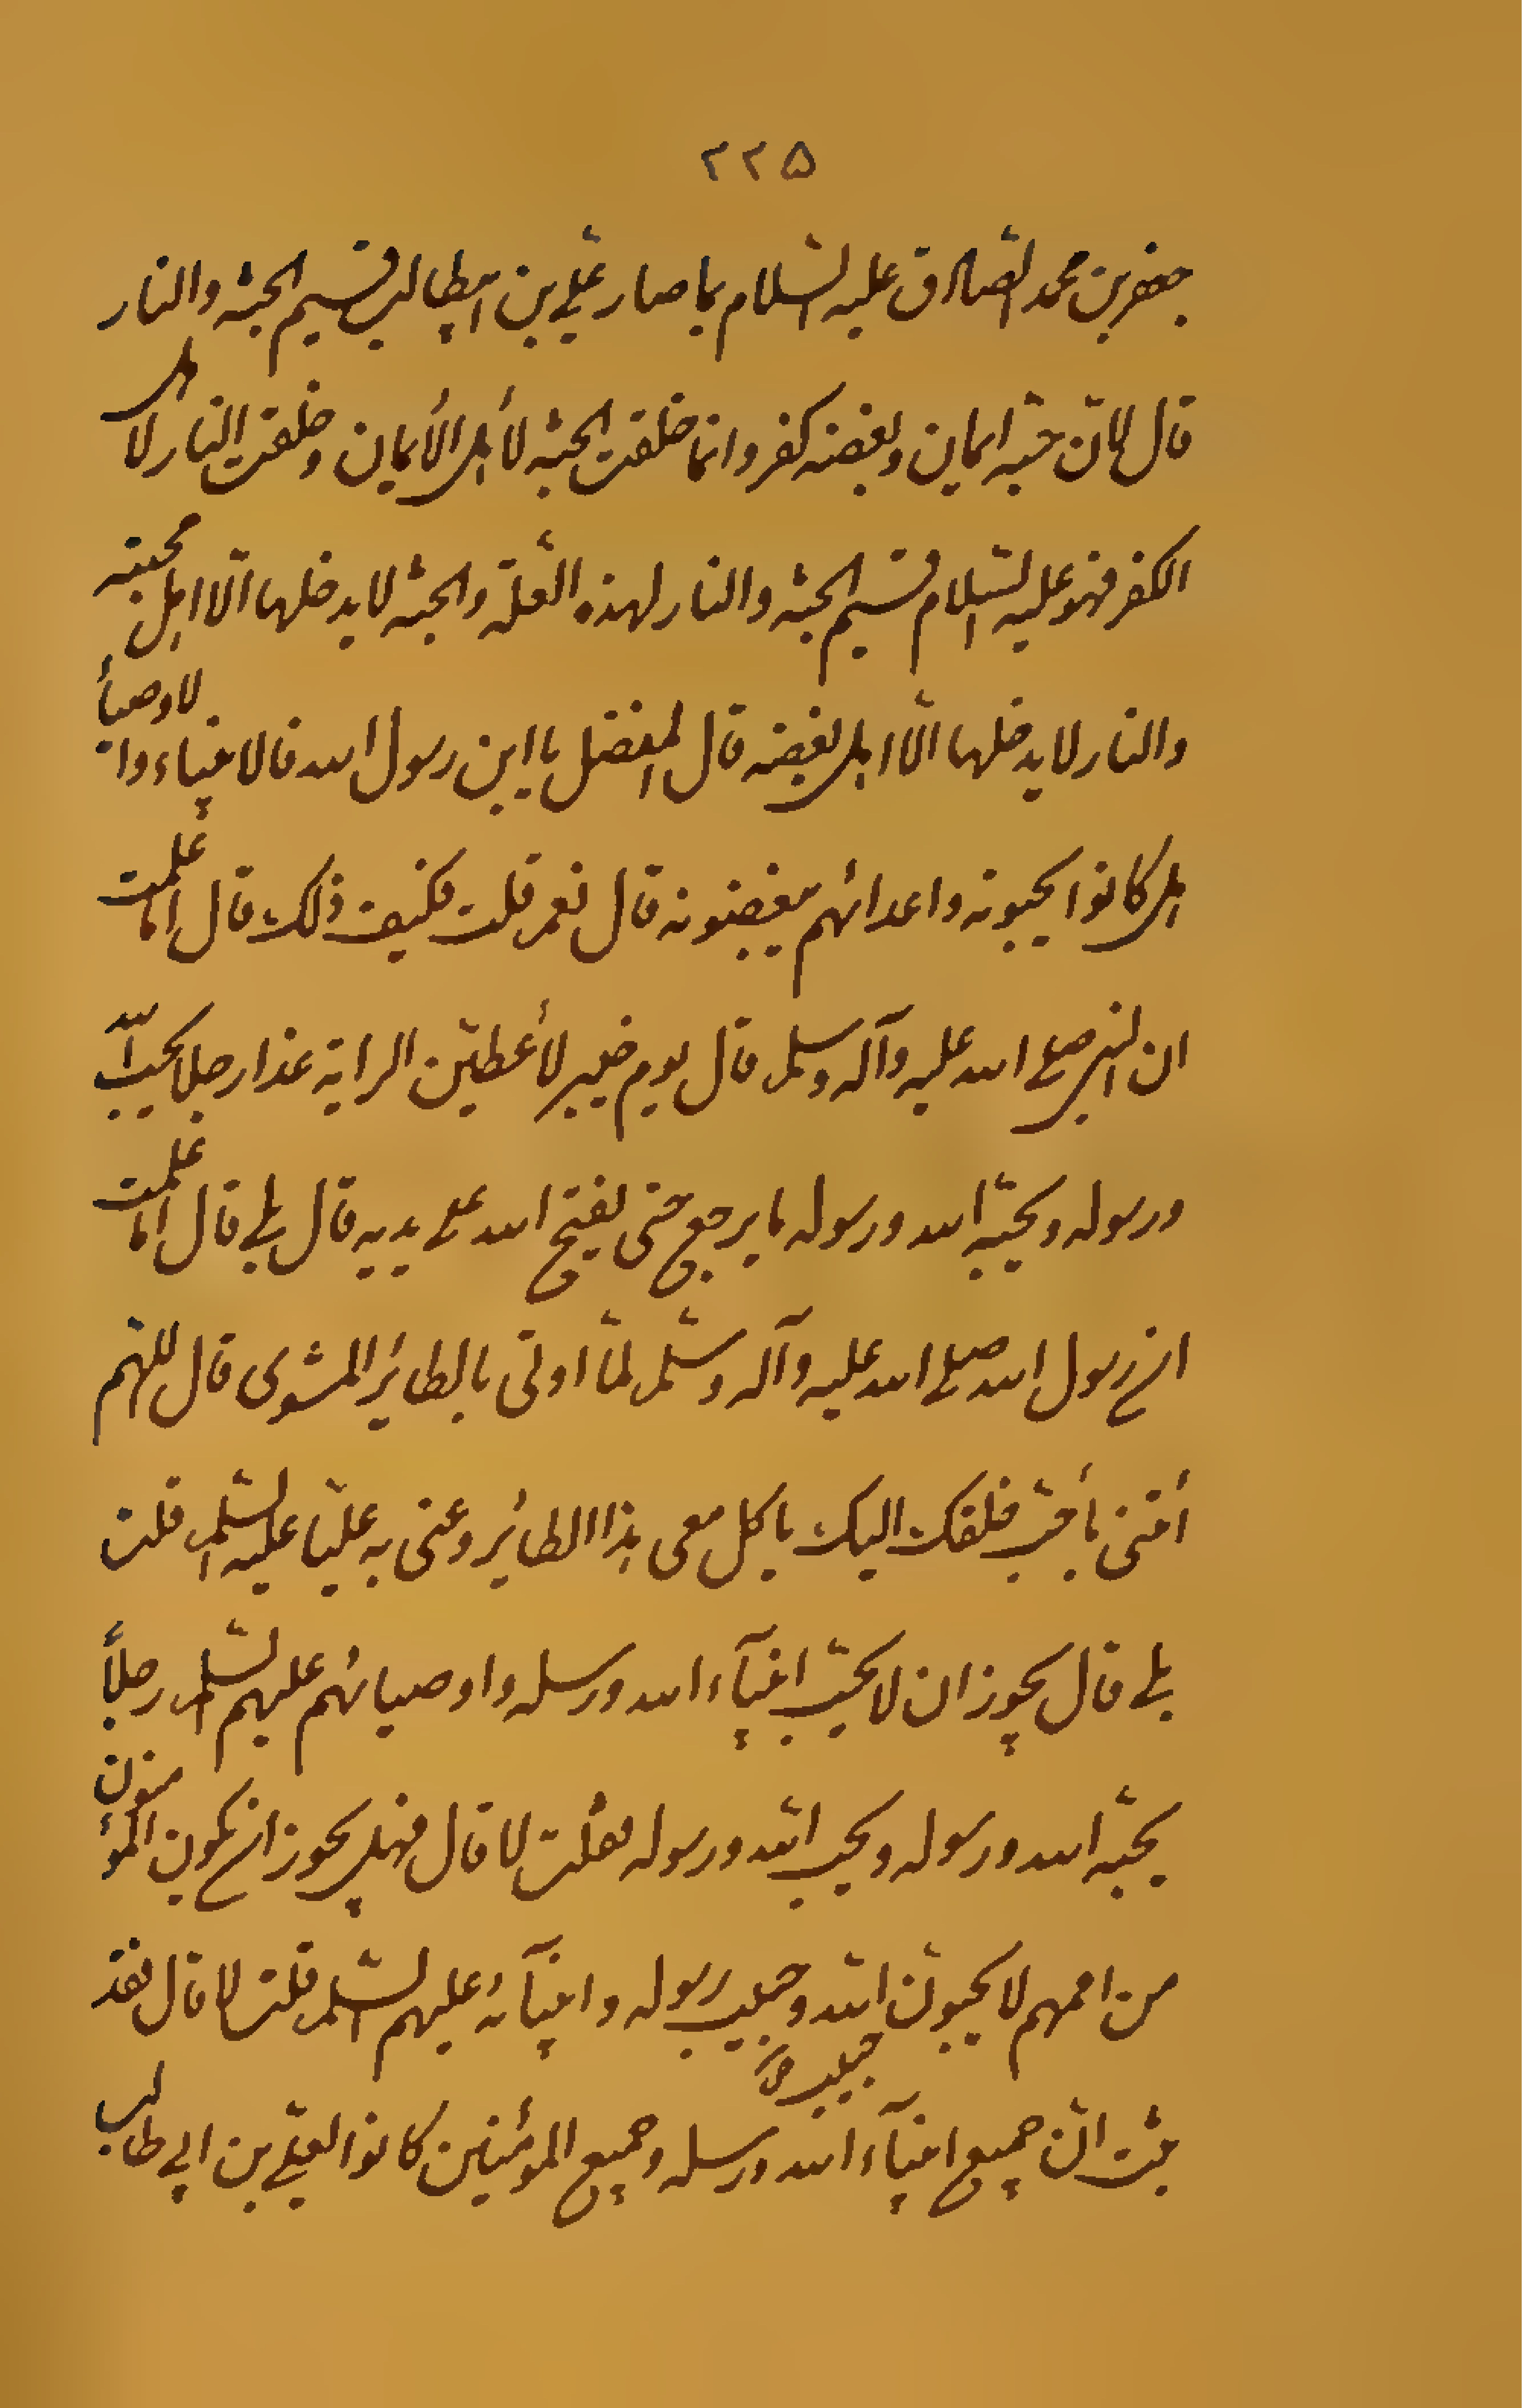 ٢٢٥
جعفر بن محمد الصّادق عليه السّلام بما صار عليّ بن ابيطالب قسيم الجنّة والنار
قال لانّ حبّه ايمان وبغضه كفر وانما خلقت الجنّة لأهل الأيمان وخلقت النار لاهل
الكفر فهو عليه السّلام قسيم الجنّة والنار لهذه العلّة والجنّة لا يدخلها الّا اهل محبته
والنار لا يدخلها الّا اهل بغضه قال المفضل يا ابن رسول الله فالانبياء والاوصياء
هل كانوا يحبونه واعدائهم يبغضونه قال نعم قلت فكيف ذلك قال اما علمت
ان النبي صلى الله عليه وآله وسلم قال يوم خيبر لأعطينّ الراية غدا رجلا يحبّ الله
ورسوله ويحبّه الله ورسوله ما يرجع حتى يفتح الله على يديه قال بلى قال اما علمت
ان رسول الله صلى الله عليه وآله وسلّم لمّا اوتى بالطائر المشوى قال اللهم
أتنى بأحبّ خلقك اليك ياكل معى هذا الطائر وعنى به عليّا عليه السّلم قلت
بلى قال يجوز ان لا يحبّ انبيآء الله ورسله واوصيائهم عليهم السّلم رجلاً
يحبّه الله ورسوله ويحب الله ورسوله فقلت لا قال فهل يجوز ان يكون المؤمنون
من اممهم لا يحبون الله وحبيب رسوله وانبيآئه عليهم السّلم قلت لا قال فقد
حبيبه
ثبت انّ جميع انبيآء الله ورسله وجميع المؤمنين كانوا لعلي بن ابي طالب